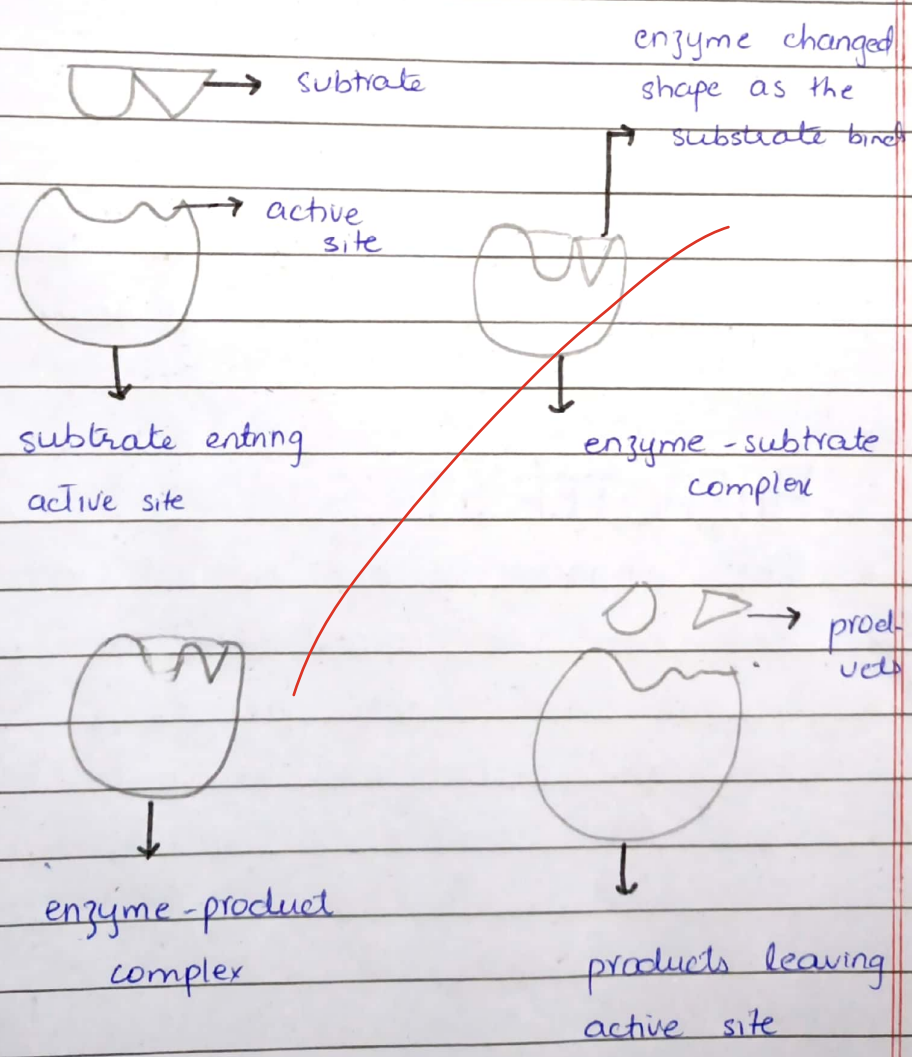 subtrate
enzyme changed
shape as the
substrate bind
active
site
subtrate entring
active site
enzyme - subtrate
complex
prod-
ucts
enzyme - product
complex
products leaving
active site